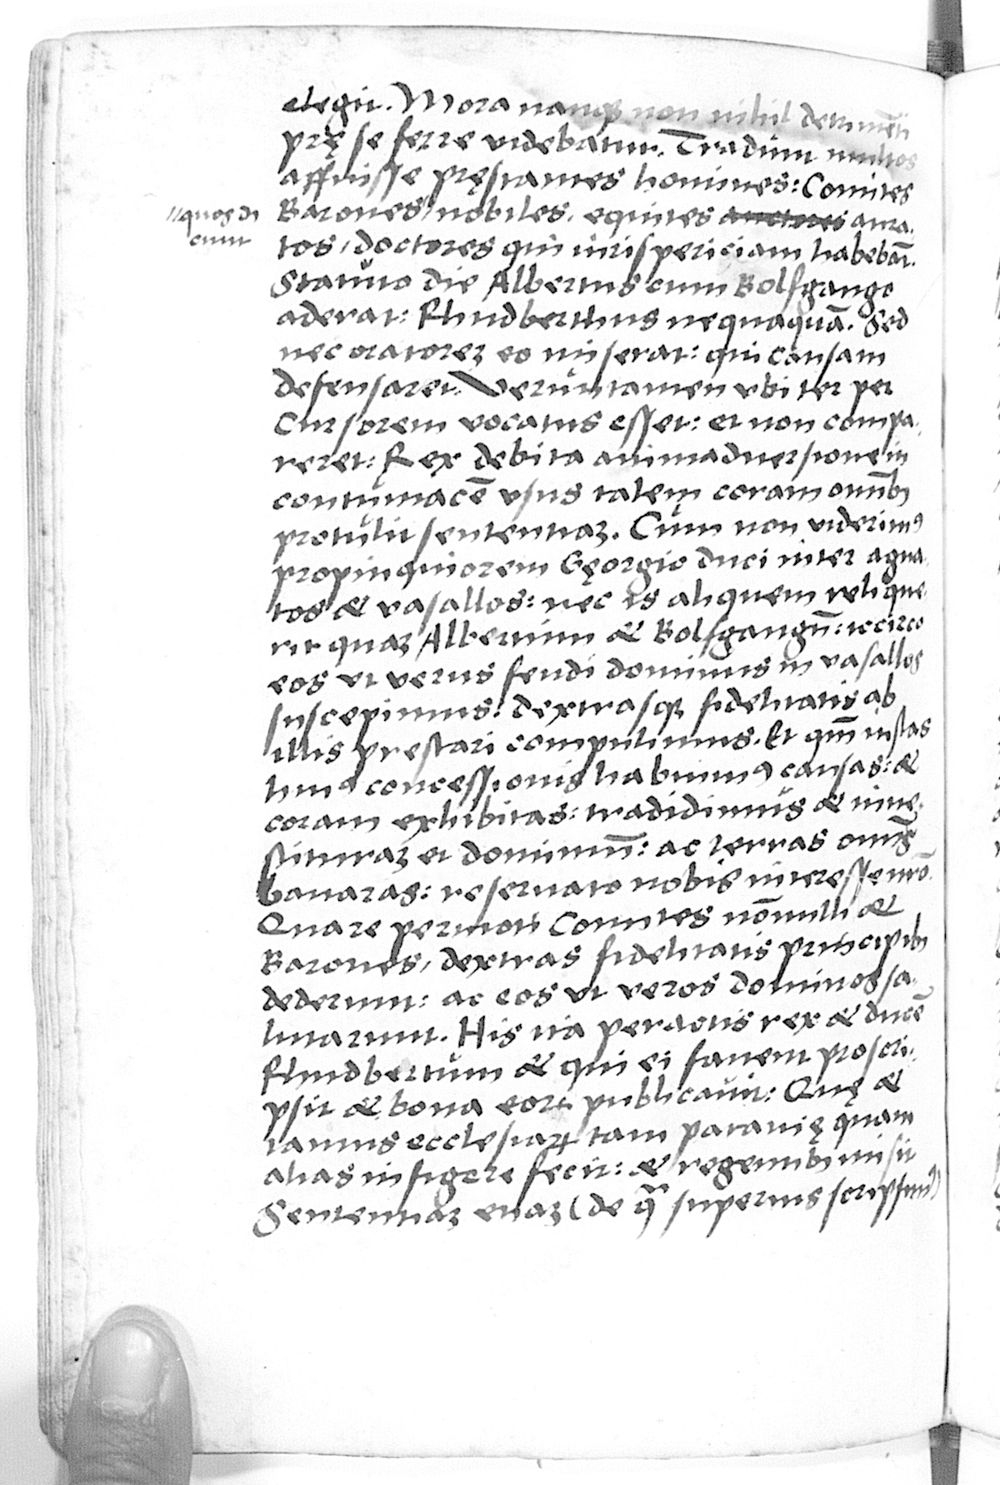 elegit. Mora nanq; non nihil detrimẽti
prę se ferre videbatur. Tradũnt multos
affuisse pręstantes homines: Comites
Barones, nobiles, equites auctores aura-
tos, doctores qui iurisperitiam habebãt.
"quos di
cunt
Statuto die Albertus cum Bolfgango
aderat: Rhudberthus nequaquã. Sed
nec oratorez eo miserat: qui causam
defensaret. Veruntamen vbi ter per
Cursorem vocatus esset: et non compa-
reret: Rex debita animaduersione in
contumacẽ vsus talem coram omnibꝫ
protulit sententiaz. Cum non viderimꝰ
propinquiorem Gęorgio duci inter agna-
tos & vasallos: nec is aliquem relique-
rit quaz Albertum & Bolfgangũ: iccirco
eos vt verus feudi dominus in vasallos
suscepimus: dextrasqꝫ fidelitatis ab
illis prestari compulimus. Et qm̃ iustas
huiꝰ concessionis habuimꝰ causas: &
coram exhibitas: tradidimus & inue-
stituraz et dominiũ: ac terras omñs
bauaras: reseruato nobis interesse nrõ.
Quare permoti Comites nõnulli &
Barones, dextras fidelitatis principibꝫ
dederunt: ac eos vt veros dominos sa-
lutarunt. His ita peractis rex & ducẽ
Rhudbertum & qui ei fauent proscri-
psit & bona eoꝝ publicauit: Quę &
ianuis ecclesiaꝝ tam patauię quam
alias infigere fecit: & regentibꝫ misit
Sententiaz etiaz (de qᷓ superius scripsimꝰ)